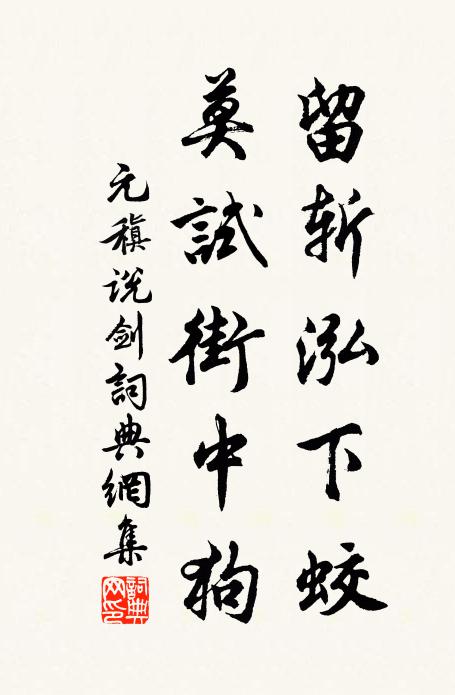 留斬泓下蛟
莫試街中狗
元稹说剑詞典網集
詞典网印